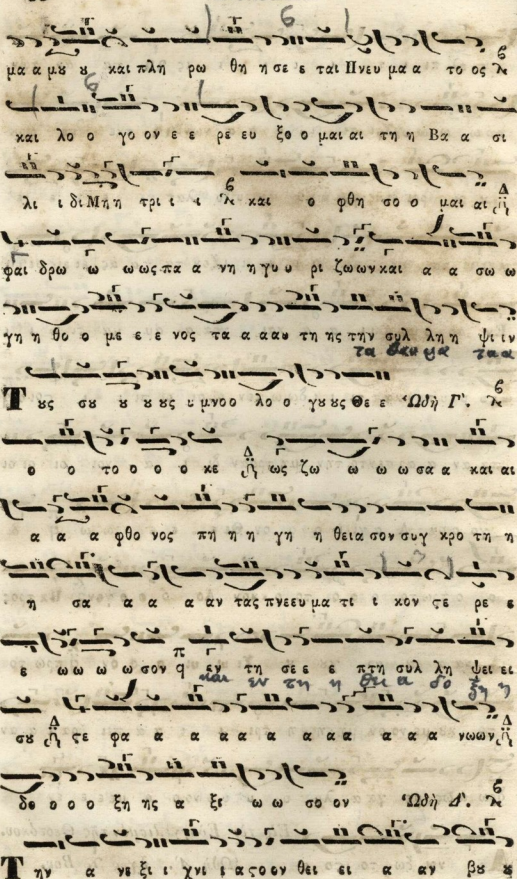 μα α μυ υ και πλη ρω θη η σε ε ται Πνευ μα α το ος
και λο ο γο ον ε ε ρε ευ ξο ο μαι αι τη η Βα α σι
λι ι δι Μη η τρι ι ι και ο φθη σο ο μαι αι
φαι δρω ω ω ως πα α νη η γυ υ ρι ζω ων και α α σω ω
γη η θο ο με ε ε νος τα α α αυ τη ης την συλ λη η ψι ιν
Τ ȣς σȣ ȣ ȣ ȣς υ μνο ο λο ο γȣ ȣς Θε ε Ὠδὴ Γʹ.
ο ο το ο ο ο ο κε ως ζω ω ω ω ω σα α και αι
α α α φθο νος πη η η γη η θεια σον συγ κρο τη η
η σα α α α αν τας πνε ευ μα τι ι κον ϛε ρε ε
ε ω ω ω ω σον εν τη σε ε ε πτη συλ λη ψει ει
και εν τη η θει α δο ξη η
σȣ ϛε φα α α α α α α α α α α νω ων
δο ο ο ο ξη ης α ξι ω ω σο ον Ὠδὴ Δʹ.
Τ ην α νε ξι ι χνι ι α το ον θει ει α αν βȣ ȣ